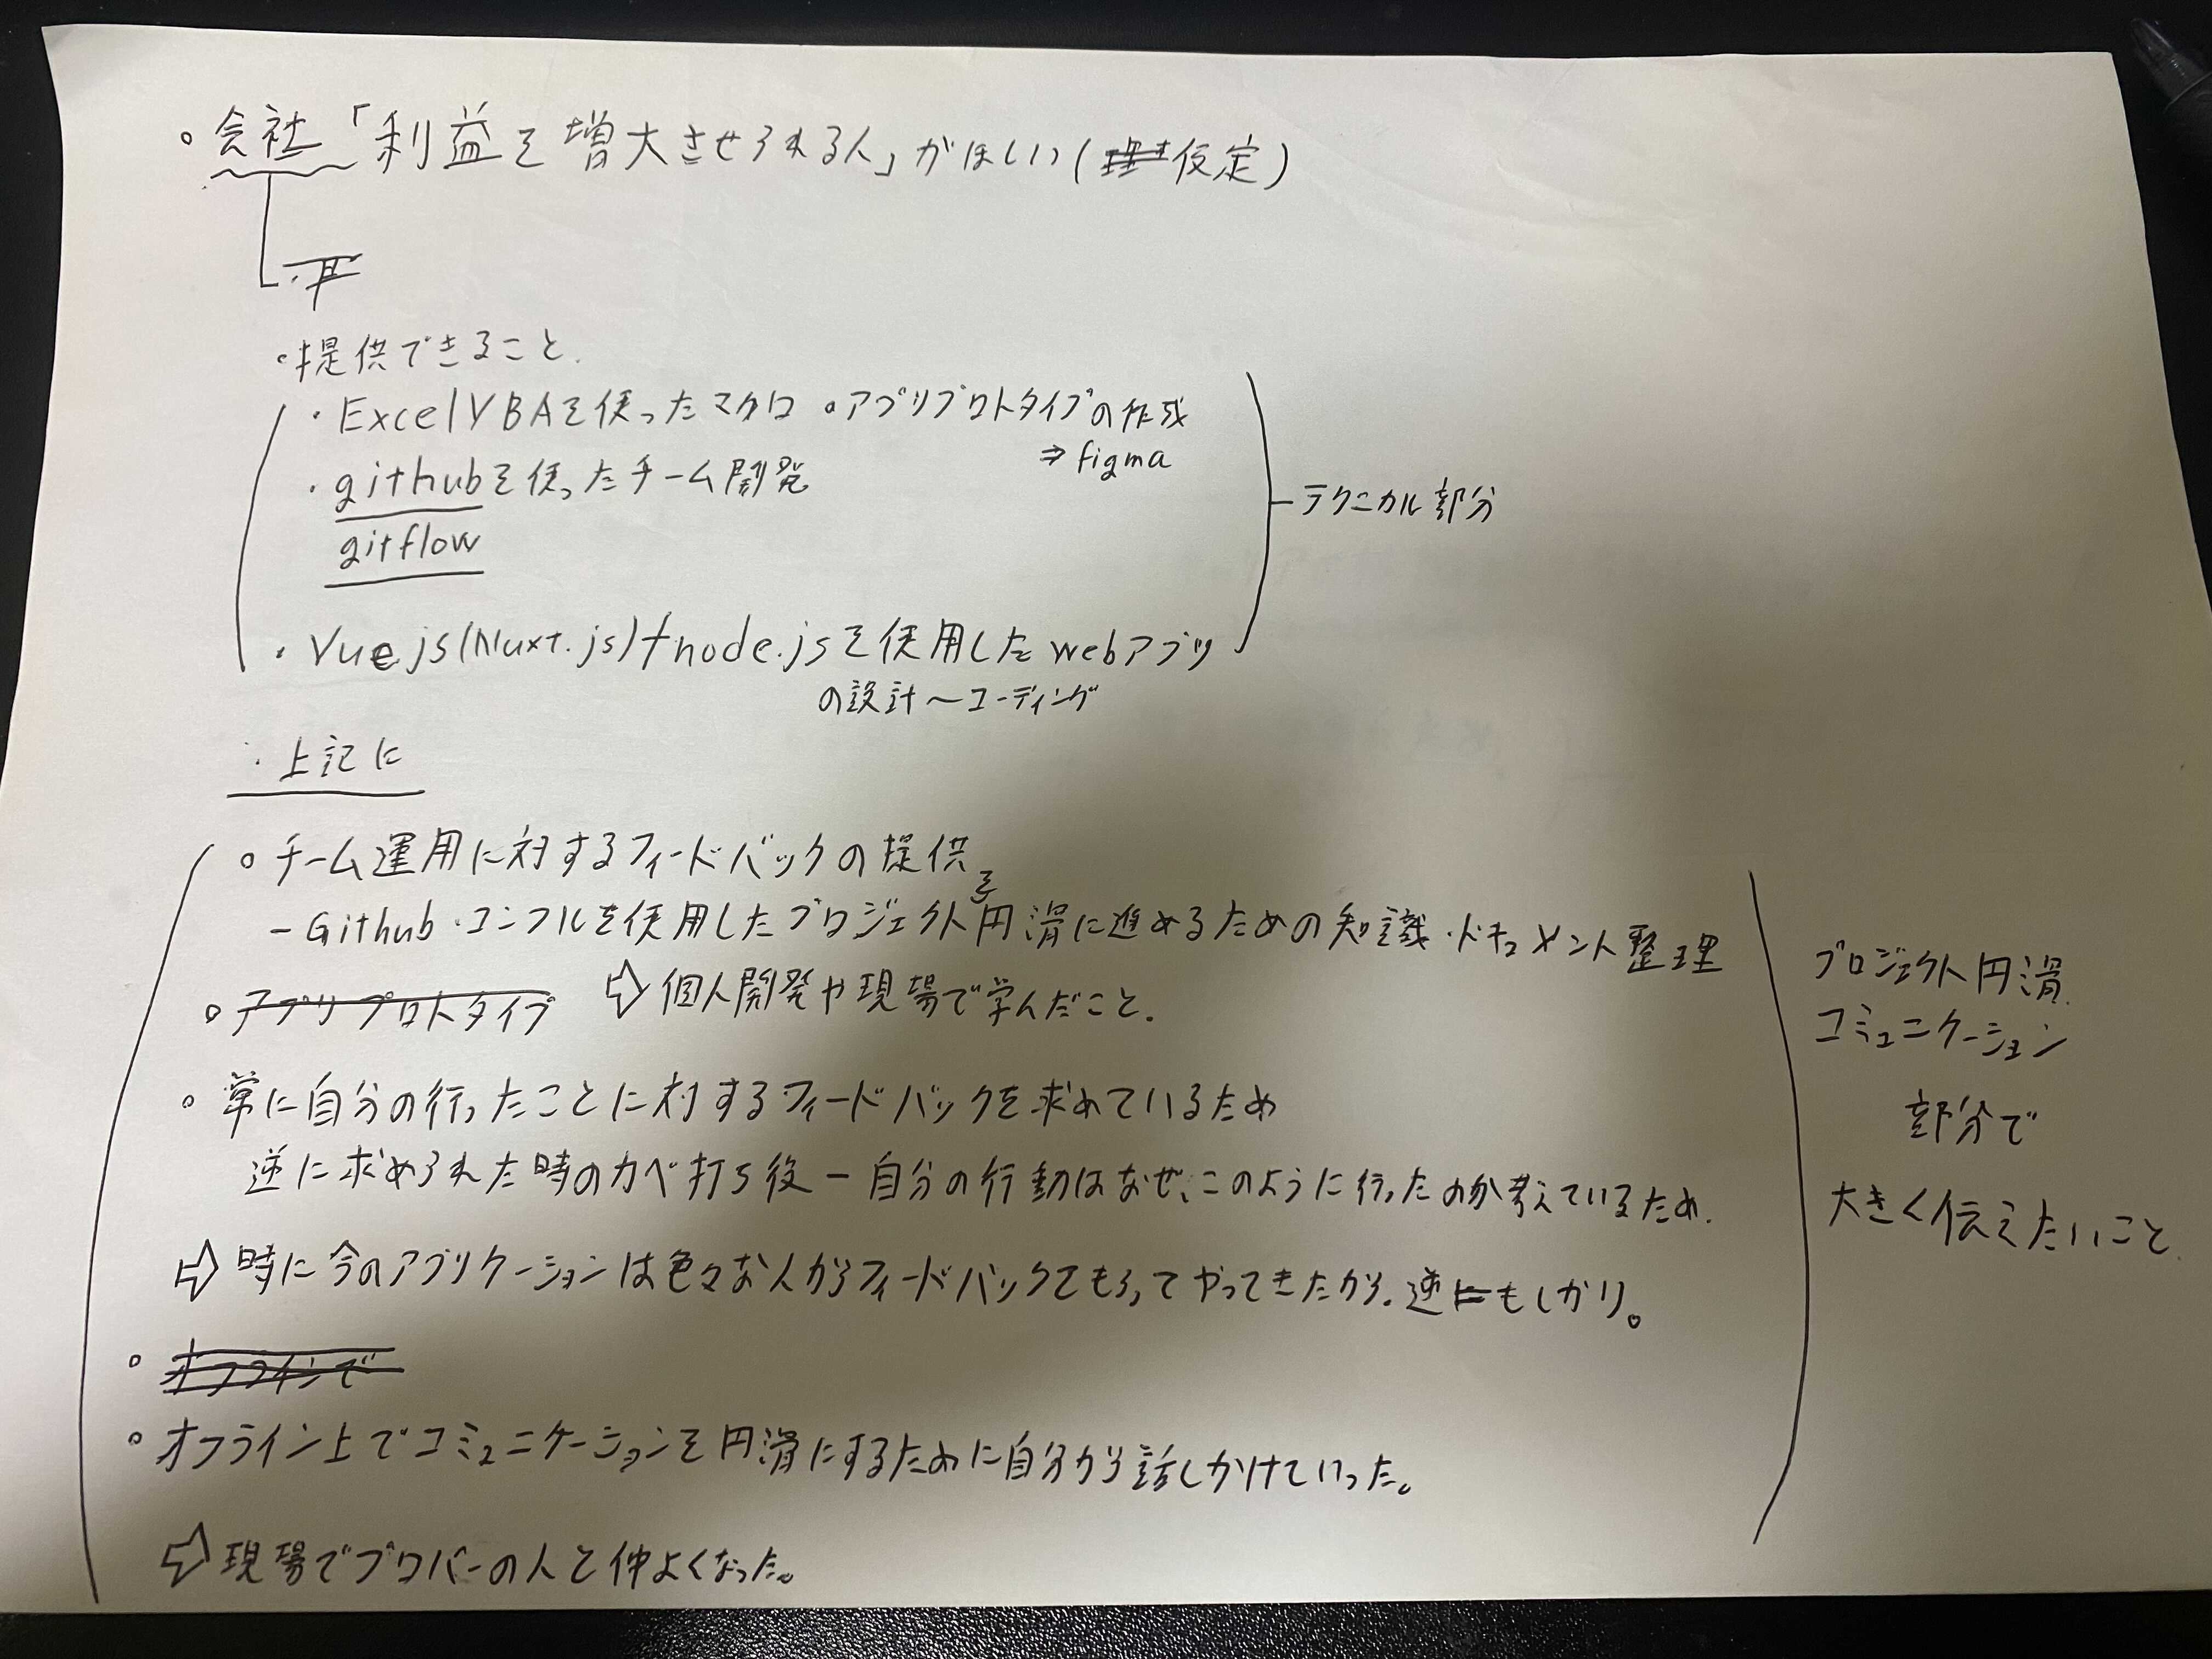 ○会社「利益を増大させられる人」がほしい(仮定)
○提供できること.
・ExcelVBAを使ったマクロ ○アプリプロトタイプの作成
⇒figma
・githubを使ったチーム開発
gitflow
テクニカル部分
・Vue.js(Nuxt.js)+node.jsを使用したwebアプリ
の設計～コーディング
・上記に
○チーム運用に対するフィードバックの提供
－Github・コンフルを使用したプロジェクトを円滑に進めるための知識・ドキュメント整理
○アプリプロトタイプ ⇨個人開発や現場で学んだこと.
○常に自分の行ったことに対するフィードバックを求めているため
逆に求められた時のカベ打ち役－自分の行動はなぜ、このように行ったのか考えているため.
⇨時に今のアプリケーションは色々な人からフィードバックてもらってやってきたから.逆にもしかり。
○オフラインで
○オフライン上でコミュニケーションを円滑にするために自分から話しかけていった。
⇨現場でプロパーの人と仲よくなった。
プロジェクト円滑
コミュニケーション
部分で
大きく伝えたいこと.